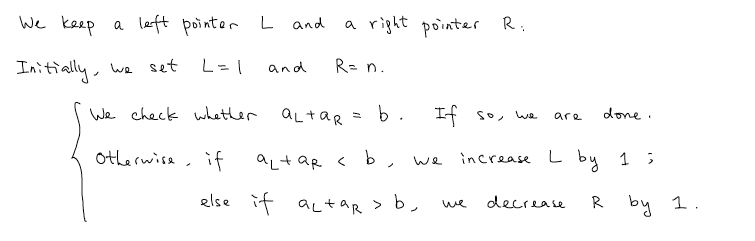 We keep a left pointer L and a right pointer R.
Initially, we set L = 1 and R = n.
We check whether a_L + a_R = b. If so, we are done.
Otherwise, if a_L + a_R < b, we increase L by 1;
else if a_L + a_R > b, we decrease R by 1.